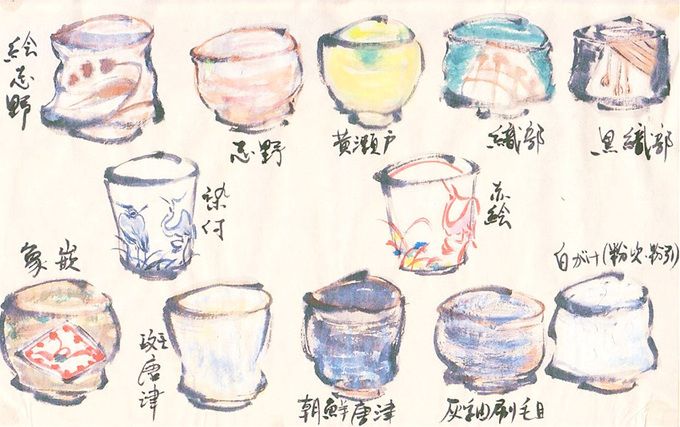 絵志野
志野
黄瀬戸
織部
黒織部
染付
赤絵
象嵌
斑唐津
朝鮮唐津
灰釉刷毛目
白がけ(粉吹・粉引)